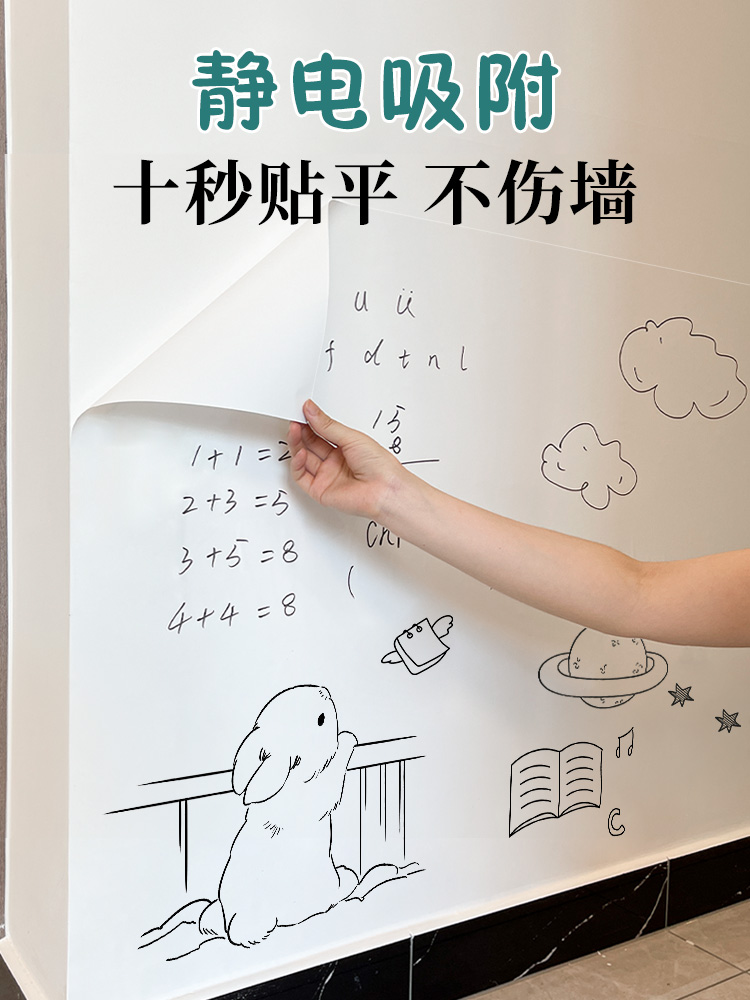 静电吸附
十秒贴平 不伤墙
u ü
f d t n l
15
8
1+1=2
2+3=5
3+5=8
4+4=8
C